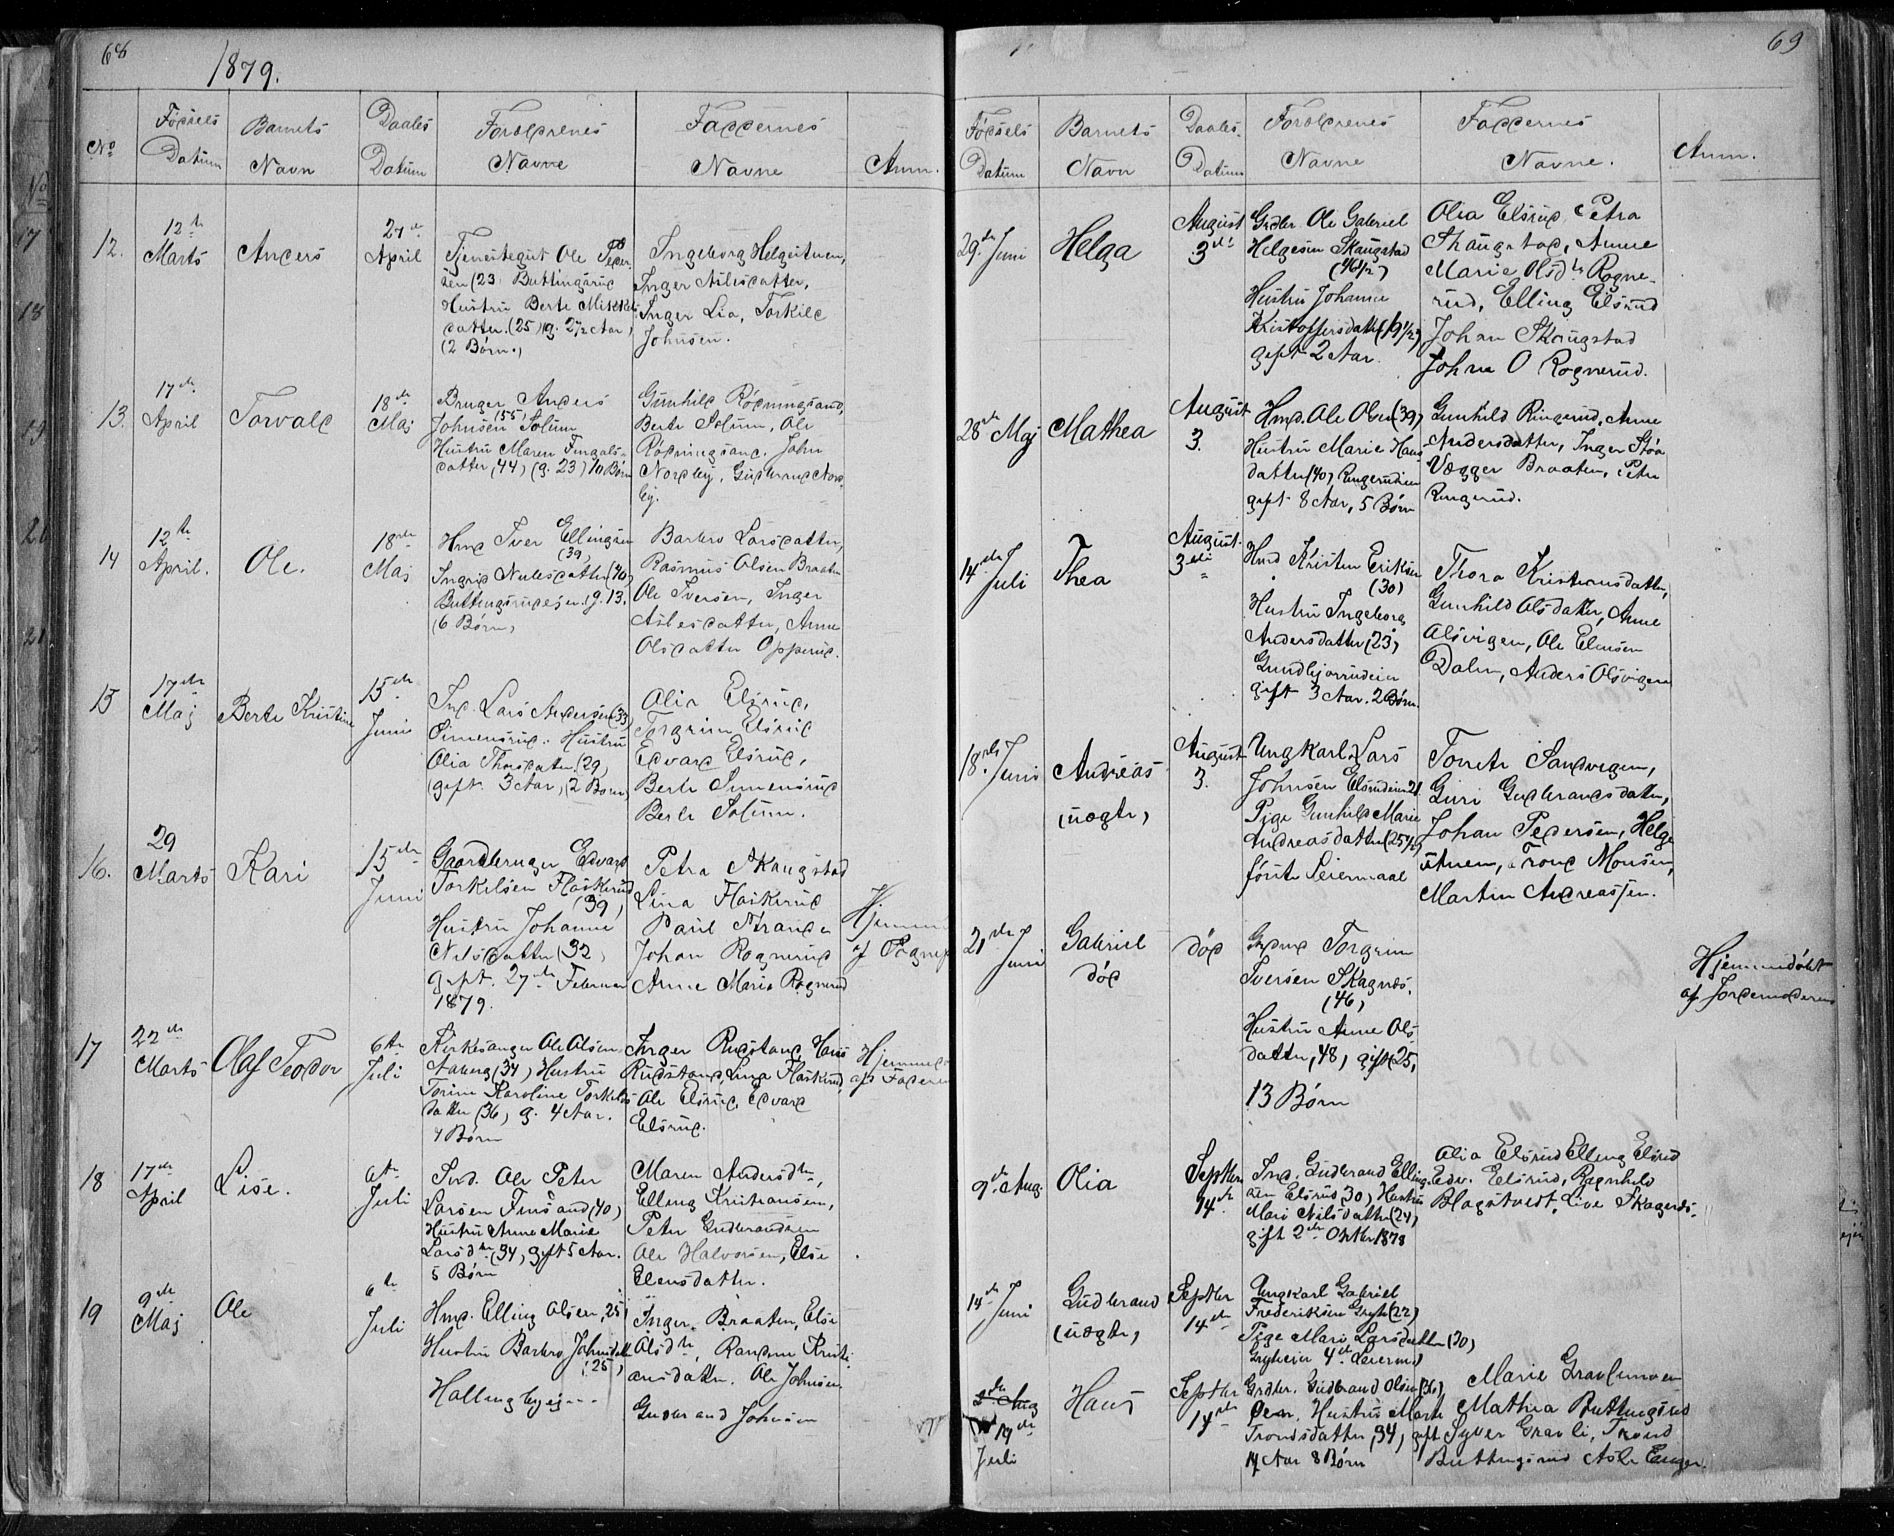 68
1879.
No
Føcsels
Datum
Barnets
Navn
Daabs
Datum
Forælcrenes
Navne
Faccernes
Navne
Anm.
12.
12te
Marts
Ancers
27de
April
Tjenestegut Ole Pecer
sen (23 Buttingsruc
Hustru Berte Mikkels
catter. (25) g. 2½ Aar,
(2 Børn.)
Ingeborg Helgeituen,
Inger Aslescatter,
Inger Lia, Torkilc
Johnsen.
13.
17de
April
Torvalc
18de
Maj
Bruger Ancers
Johnsen (55) Solum
Hustru Maren Fingals-
catter (44) (g. 23) 10 Børn
Gunhilc Røcningsanc,
Berte Solum, Ole
Røcningsanc. John
Norcby, Gucbranc Norc
by.
14
12te
April.
Ole.
18de
Maj
Hmc Iver Ellingsen
(39)
Ingric Nilscatter (40)
Buttingsrucejen. g. 13.
(6 Børn)
Barbro Larscatter,
Rasmus Olsen Braaten
Ole Iversen, Inger
Aslescatter, Anne
Olscatter Opperuc.
15
17de
Maj
Berte Kristine
15de
Juni
Inc. Lars Andersen (33)
Simensruc. Hustru
Olia Thorscatter (29)
(gift 3 Aar, (2 Børn)
Olia Elsruc,
Torgrim Elsruc
Ecvarc Elsruc,
Berte Simensruc
Berte Solum.
16.
29
Marts
Kari
15de
Juni
Gaardbruger Edvart
Torkilsen Flaskerud
(39)
Hustru Johanne
Nilscatter (32)
gift. 27de Februar
1879.
Petra Skaugstad
Lina Flaskeruc
Paul Strande
Johan Rogneruc
Anne Marie Rognerud
17
22de
Marts
Olaf Teodor
6te
Juli
Kirkesanger Ole Olsen
(34) Hustru
Torine Karoline Torkils
datter (36) g. 4 Aar.
4 Børn
Inger Rucstanc, Hans
Rudstanc, Lina Flaskeruc,
Ole Elsruc, Ecvarc
Elsruc.
af Faceren
18
17de
April
Lise.
6te
Juli
Ind. Ole Peter
Larsen Finsand (40)
Hustru Anne Marie
Larsdtr (34) gift 5 Aar.
5 Børn
Maren Andersdtr,
Elling Kristiansen,
Peter Gudbrandsen
Ole Halvorsen, Else
Elensdatter.
19
9de
Maj
Ole
6te
Juli
Hmd. Elling Olsen, 25
Hustru Barbro Johnsdatter
(25)
Inger Braaten, Else
Olsdtr, Randine Kristi
ansdatter. Ole Johnsen
Gudbrand Johnsen
69
Føcsels
Datum
Barnets
Navn
Daabs
Datum
Forælcrenes
Navne
Faccernes
Navne.
Anm.
29de Juni
Helga
August
3die
Grdbr. Ole Gabriel
Helgesen Skaugstad
(46½)
Hustru Johanne
Kristoffersdatter (19½)
gift 2 Aar.
Olia Elsruc, Petra
Skaugstac, Anne
Marie Olsdtr Rogne-
rud, Elling Elsrud
Johan Skaugstad
Johan O Rognerud.
28de Maj
Mathea
August
3.
Hmd. Ole Olsen (39)
Hustru Marie Hans
datter (40) Ringerudeien
gift 8 Aar, 5 Børn
Gunhild Ringerud, Anne
Andersdatter, Inger Stöa
Vægger Braaten, Petra
Ringerud.
14de
Juli
Thea
August.
3die
Hmd Kristen Eriksen
(30)
Hustru Ingeborg
Andersdatter (23)
Gundbjørrudeien
gift 3 Aar. 2 Børn.
Thora Kristiansdatter,
Gunhild Olsdatter, Anne
Olsvigen, Ole Elensen
Dalen, Anders Olsvigen
18de Juni
Andreas
(uægte)
August
3.
Ungkarl Lars
Johnsen Elsrudeien 21.
Pige Gunhild Marie
Andreasdatter (25½)
første Leiermaal
Torrete Sandvigen,
Guri Gucbrancsdatter,
Johan Pedersen, Helge
ituen, Tronc Monsen,
Martin Andreassen.
21de
Juni
Gabriel
døc
døc
Torgrim
Iversen Skagnæs.
(46)
Hustru Anne Ols
datter, 48, gift 25,
13 Børn
Hjemmedøbt
af Jorcemoceren
9de Aug.
Olia
Septbr
14de
Inc. Gudbrand Elling-
sen Elsrud (30) Hustru
Mari Nilsdatter (24)
gift 2den Oktbr 1878
Olia Elsrud Elling Elsrud
Edv. Elsrud, Ragnhild
Blagstvedt, Live Skagnæs.
14de Juni
Gudbrand
(uægte)
Septbr
14de
Ungkarl Gabriel
Frederiksen Gryte (22)
Pige Mari Larsdatter (30)
Gryteeier 4de Leiermaal
2de Aug
19de
Juli
Hans
Septbr
14de
Grdbr. Gudbrand Olsen (36)
Øen. Hustru Marte
Tronsdatter, 34, gift
14 Aar 8 Børn
Marie Gravlimoen
Mathea Buttingsrud
Syver Gravli, Trond
Buttingsrud Asle Enger.